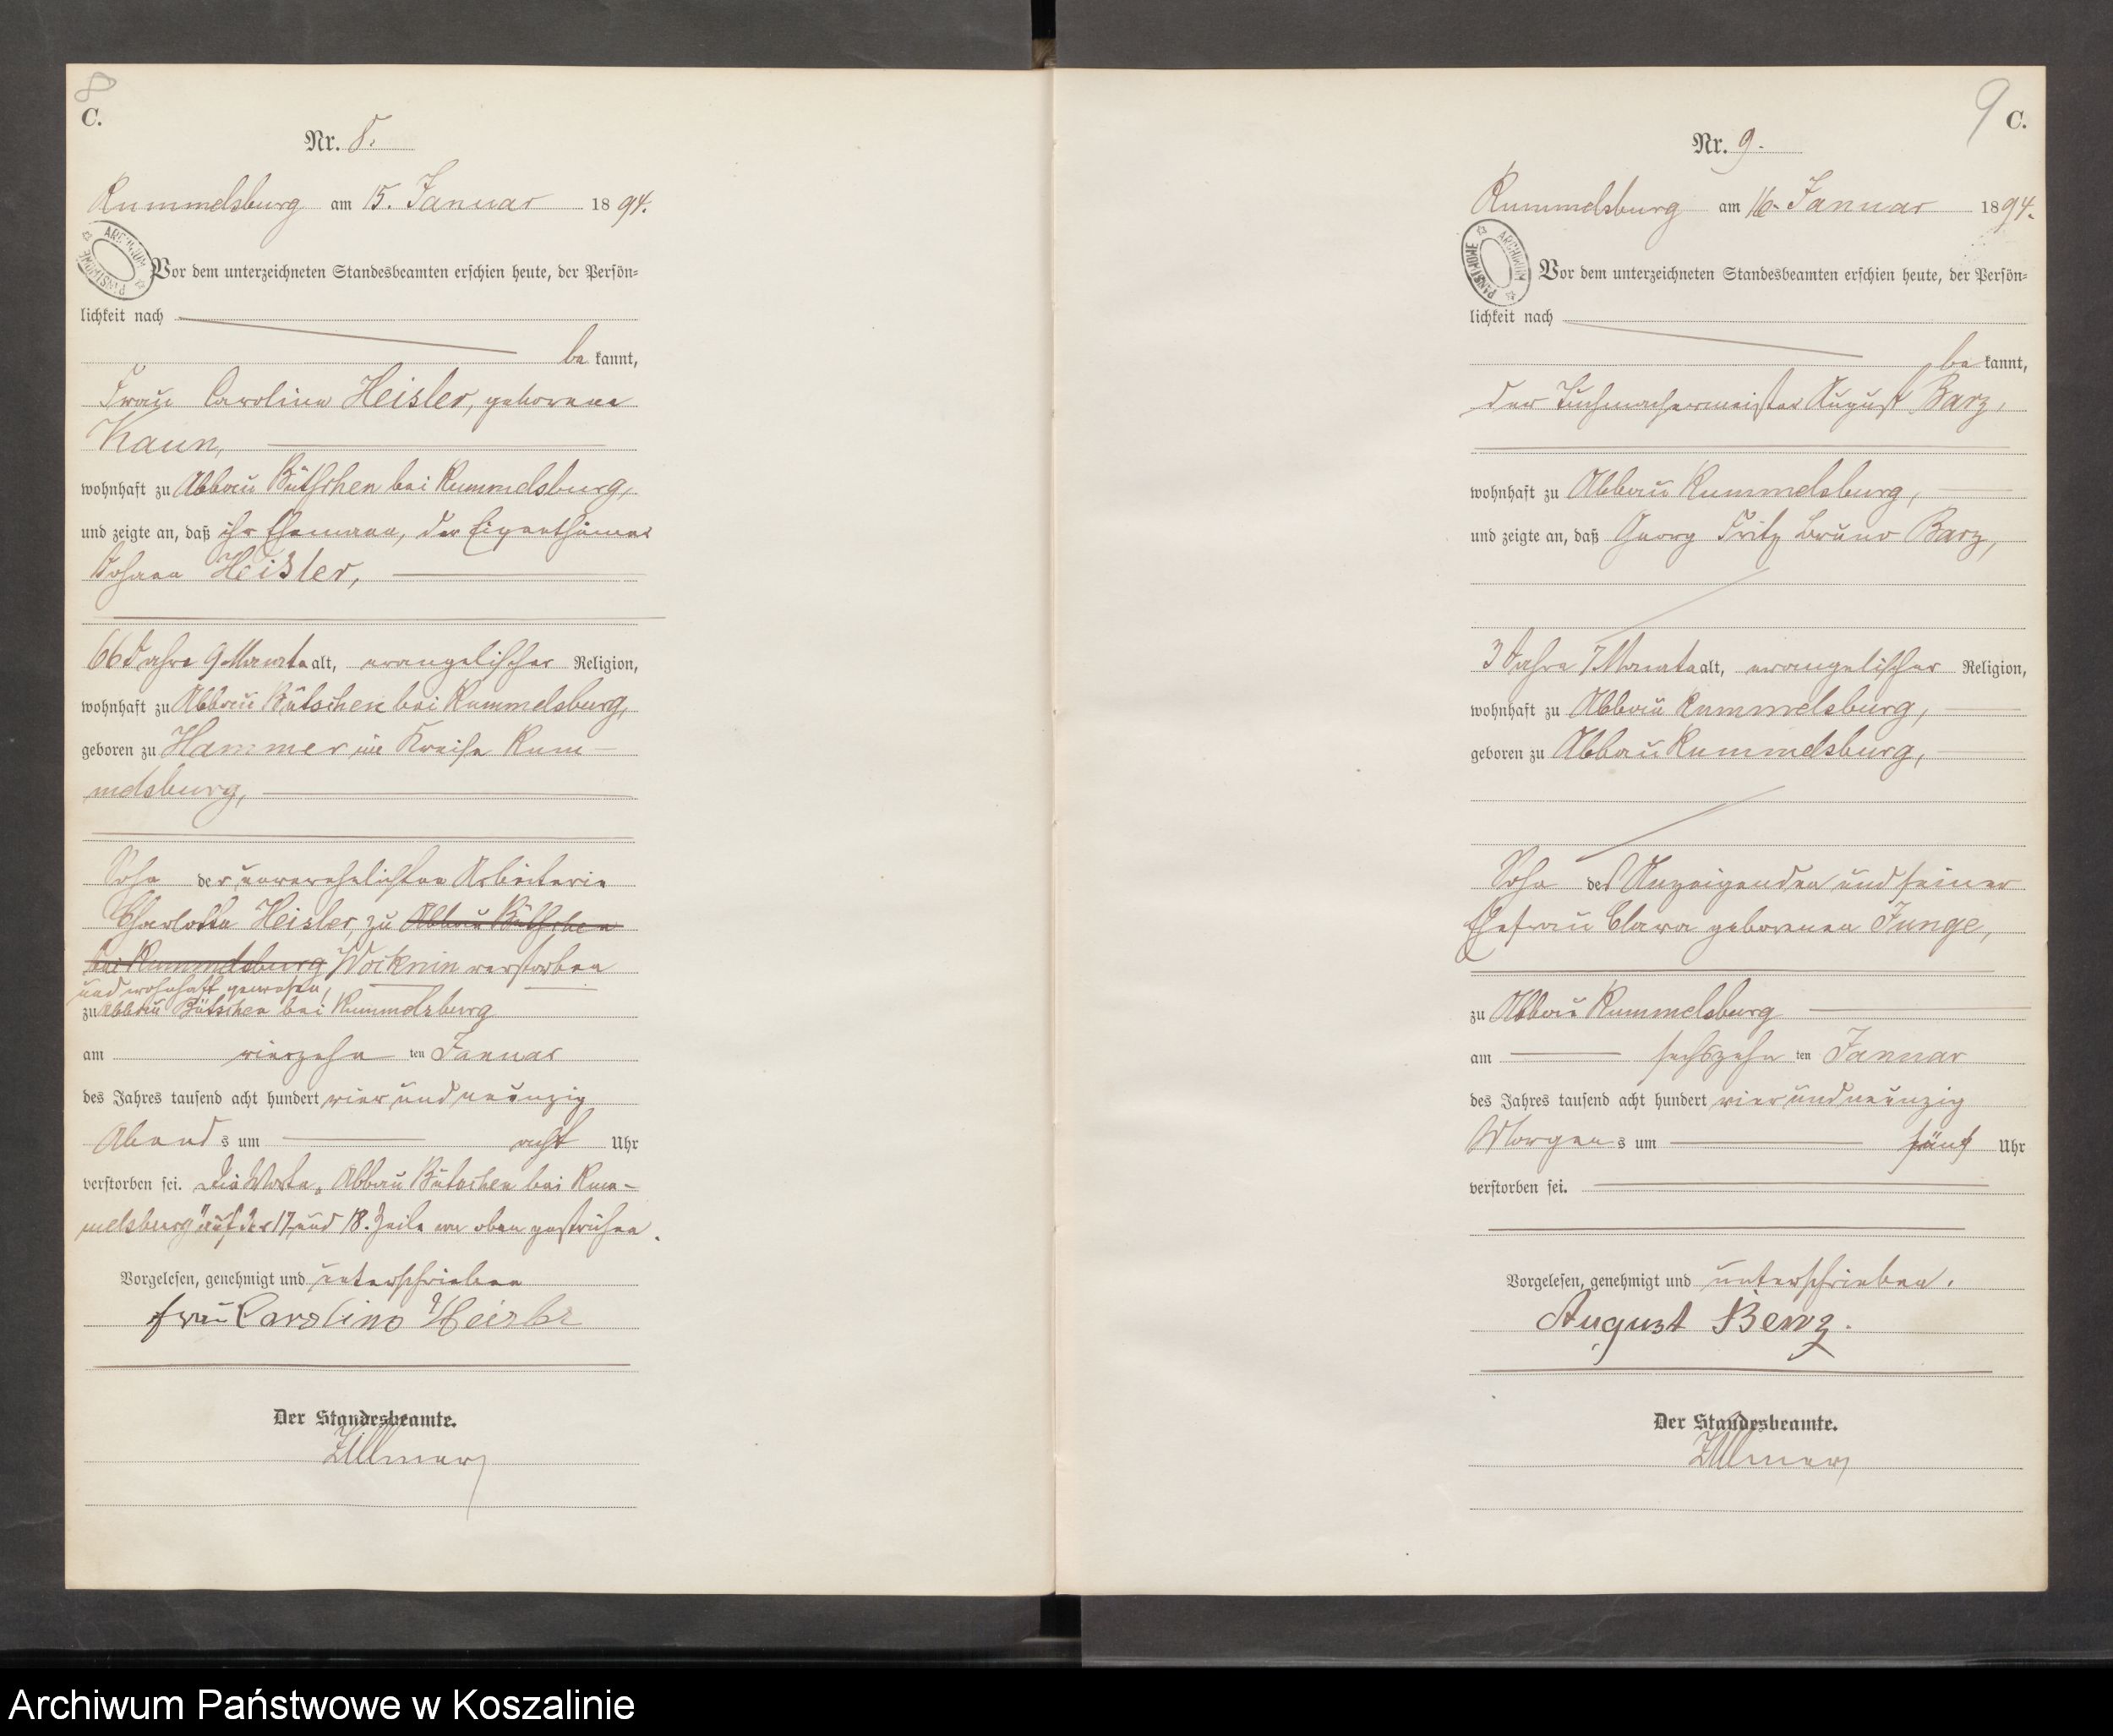 8
C.
Nr. 8.
Rummelsburg am 15. Januar 1894.
ARCHIWUM PAŃSTWOWE
Vor dem unterzeichneten Standesbeamten erschien heute, der Persön-
lichkeit nach
be kannt,
Frau Caroline Heisler, geborene
Kaun,
wohnhaft zu Abbau Bütschen bei Rummelsburg,
und zeigte an, daß ihr Ehemann, der Eigenthümer
Johann Heisler,
66 Jahre 9 Monate alt, evangelischer Religion,
wohnhaft zu Abbau Bütschen bei Rummelsburg,
geboren zu Hammer im Kreise Rum-
melsburg,
Sohn der unverehelichten Arbeiterin
Charlotte Heisler, zu Abbau Bütschen
bei Rummelsburg Wocknin verstorben
und wohnhaft gewesen,
zu Abbau Bütschen bei Rummelsburg
am vierzehn ten Januar
des Jahres tausend acht hundert vier und neunzig
Abend s um acht Uhr
verstorben sei. Die Worte „Abbau Bütschen bei Rum-
melsburg" auf der 17. und 18. Zeile von oben gestrichen.
Vorgelesen, genehmigt und unterschrieben
Frau Caroline Heisler
Der Standesbeamte.
Zillmer
9
C.
Nr. 9.
Rummelsburg am 16. Januar 1894.
ARCHIWUM PAŃSTWOWE
Vor dem unterzeichneten Standesbeamten erschien heute, der Persön-
lichkeit nach
be kannt,
der Tuchmachermeister August Barz,
wohnhaft zu Abbau Rummelsburg,
und zeigte an, daß Georg Fritz Bruno Barz,
3 Jahre 7 Monate alt, evangelischer Religion,
wohnhaft zu Abbau Rummelsburg,
geboren zu Abbau Rummelsburg,
Sohn des Anzeigenden und seiner
Ehefrau Clara geborenen Junge,
zu Abbau Rummelsburg
am sechszehn ten Januar
des Jahres tausend acht hundert vier und neunzig
Morgen s um fünf Uhr
verstorben sei.
Vorgelesen, genehmigt und unterschrieben.
August Barz.
Der Standesbeamte.
Zillmer
Archiwum Państwowe w Koszalinie